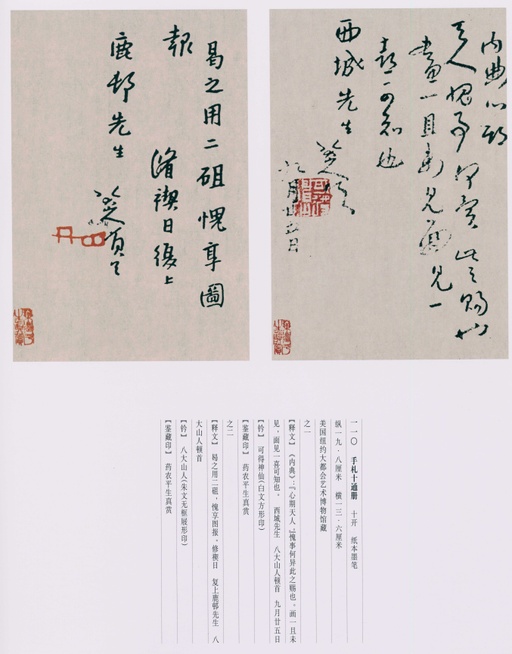 内典心期
天人愧事何异此之赐也
画一且未见面见一
喜可知也
西城先生
八大山人顿首
九月廿五日
曷之用二砠愧享圖
報
脩禊日復上
鹿邨先生
八大山人頓首
一一〇 手札十通册 十开 纸本墨笔
纵一九·八厘米 横一三·六厘米
美国纽约大都会艺术博物馆藏
之一
【释文】《内典》：「心期天人」，愧事何异此之赐也。画一且未
见，面见一喜可知也。 西城先生 八大山人顿首 九月廿五日
【钤】 可得神仙（白文方形印）
【鉴藏印】 药农平生真赏
之二
【释文】 曷之用二砠，愧享图报。修禊日 复上鹿邨先生 八
大山人顿首
【钤】 八大山人（朱文无框屐形印）
【鉴藏印】 药农平生真赏